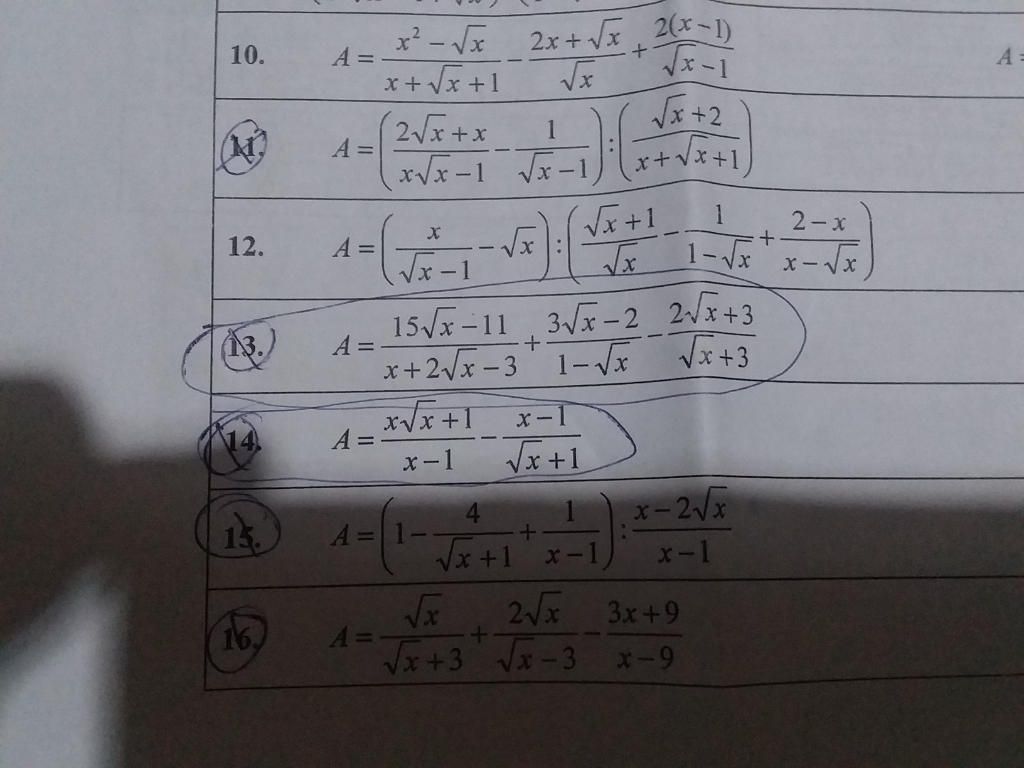 10. A = \frac{x^2 - \sqrt{x}}{x + \sqrt{x} + 1} - \frac{2x + \sqrt{x}}{\sqrt{x}} + \frac{2(x-1)}{\sqrt{x} - 1} A =
11. A = \left( \frac{2\sqrt{x} + x}{x\sqrt{x} - 1} - \frac{1}{\sqrt{x} - 1} \right) : \left( \frac{\sqrt{x} + 2}{x + \sqrt{x} + 1} \right)
12. A = \left( \frac{x}{\sqrt{x} - 1} - \sqrt{x} \right) : \left( \frac{\sqrt{x} + 1}{\sqrt{x}} - \frac{1}{1 - \sqrt{x}} + \frac{2 - x}{x - \sqrt{x}} \right)
13. A = \frac{15\sqrt{x} - 11}{x + 2\sqrt{x} - 3} + \frac{3\sqrt{x} - 2}{1 - \sqrt{x}} - \frac{2\sqrt{x} + 3}{\sqrt{x} + 3}
14. A = \frac{x\sqrt{x} + 1}{x - 1} - \frac{x - 1}{\sqrt{x} + 1}
15. A = \left( 1 - \frac{4}{\sqrt{x} + 1} + \frac{1}{x - 1} \right) : \frac{x - 2\sqrt{x}}{x - 1}
16. A = \frac{\sqrt{x}}{\sqrt{x} + 3} + \frac{2\sqrt{x}}{\sqrt{x} - 3} - \frac{3x + 9}{x - 9}